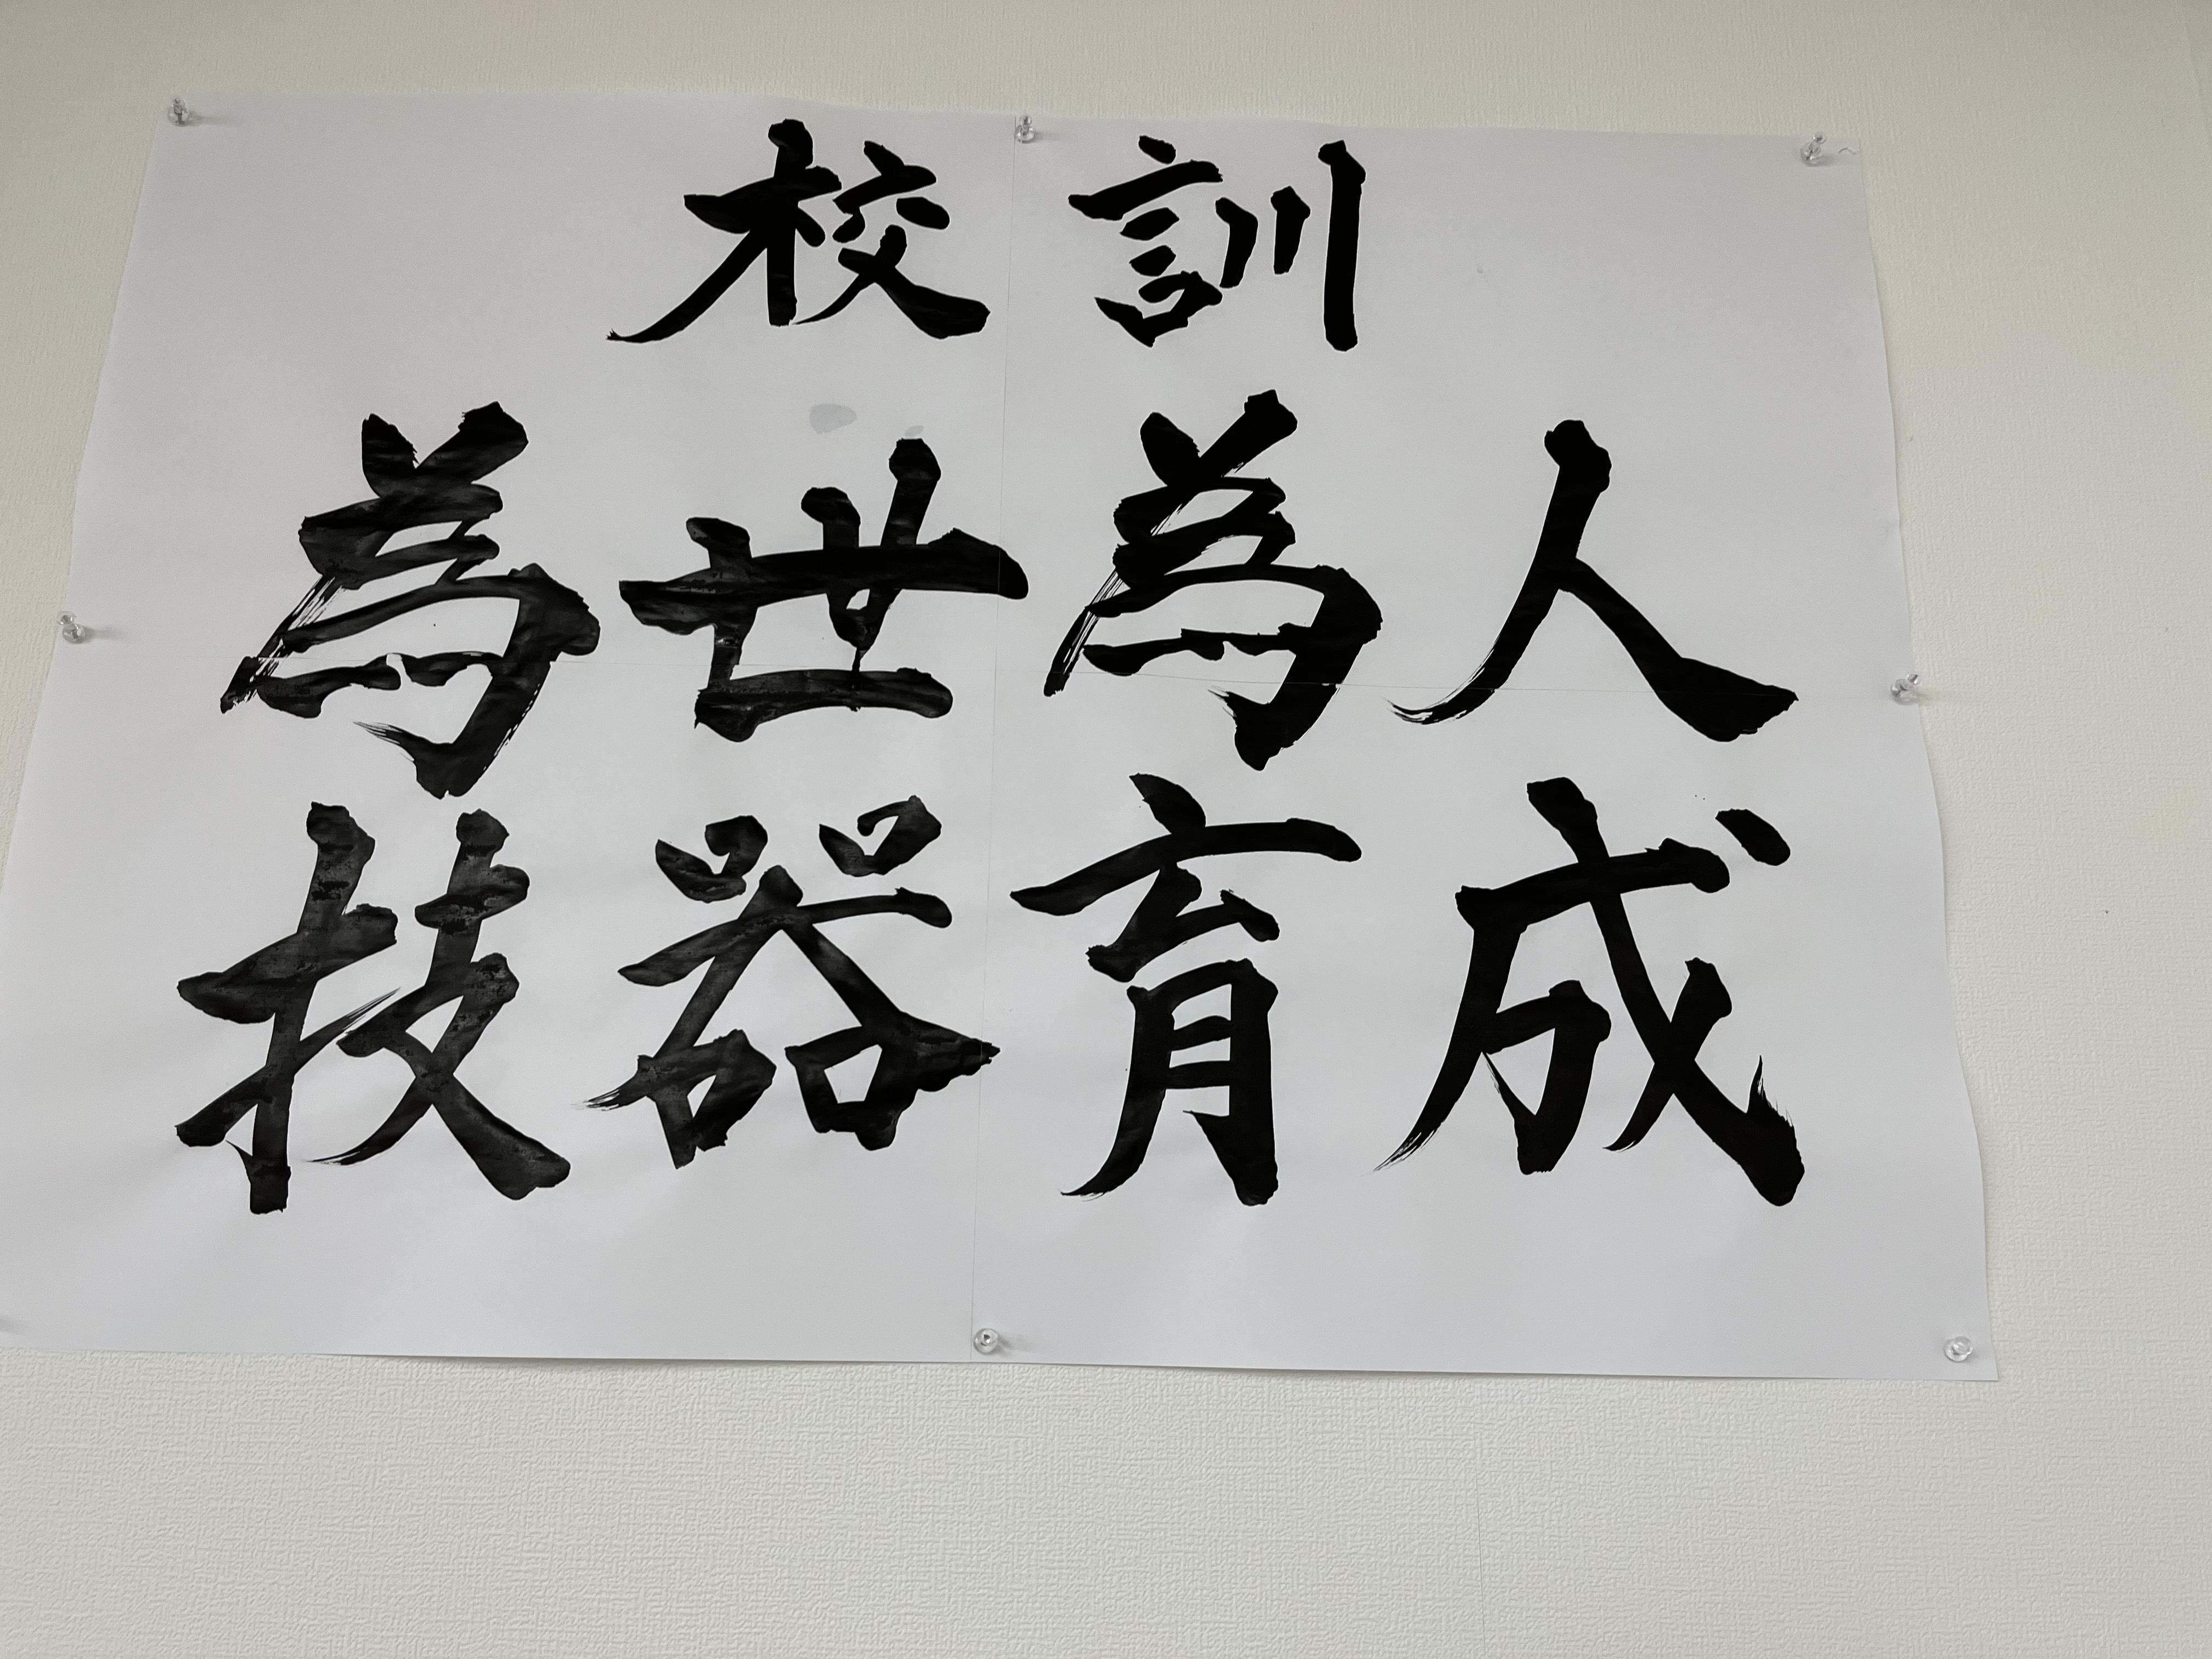 校訓
為世為人
技器育成